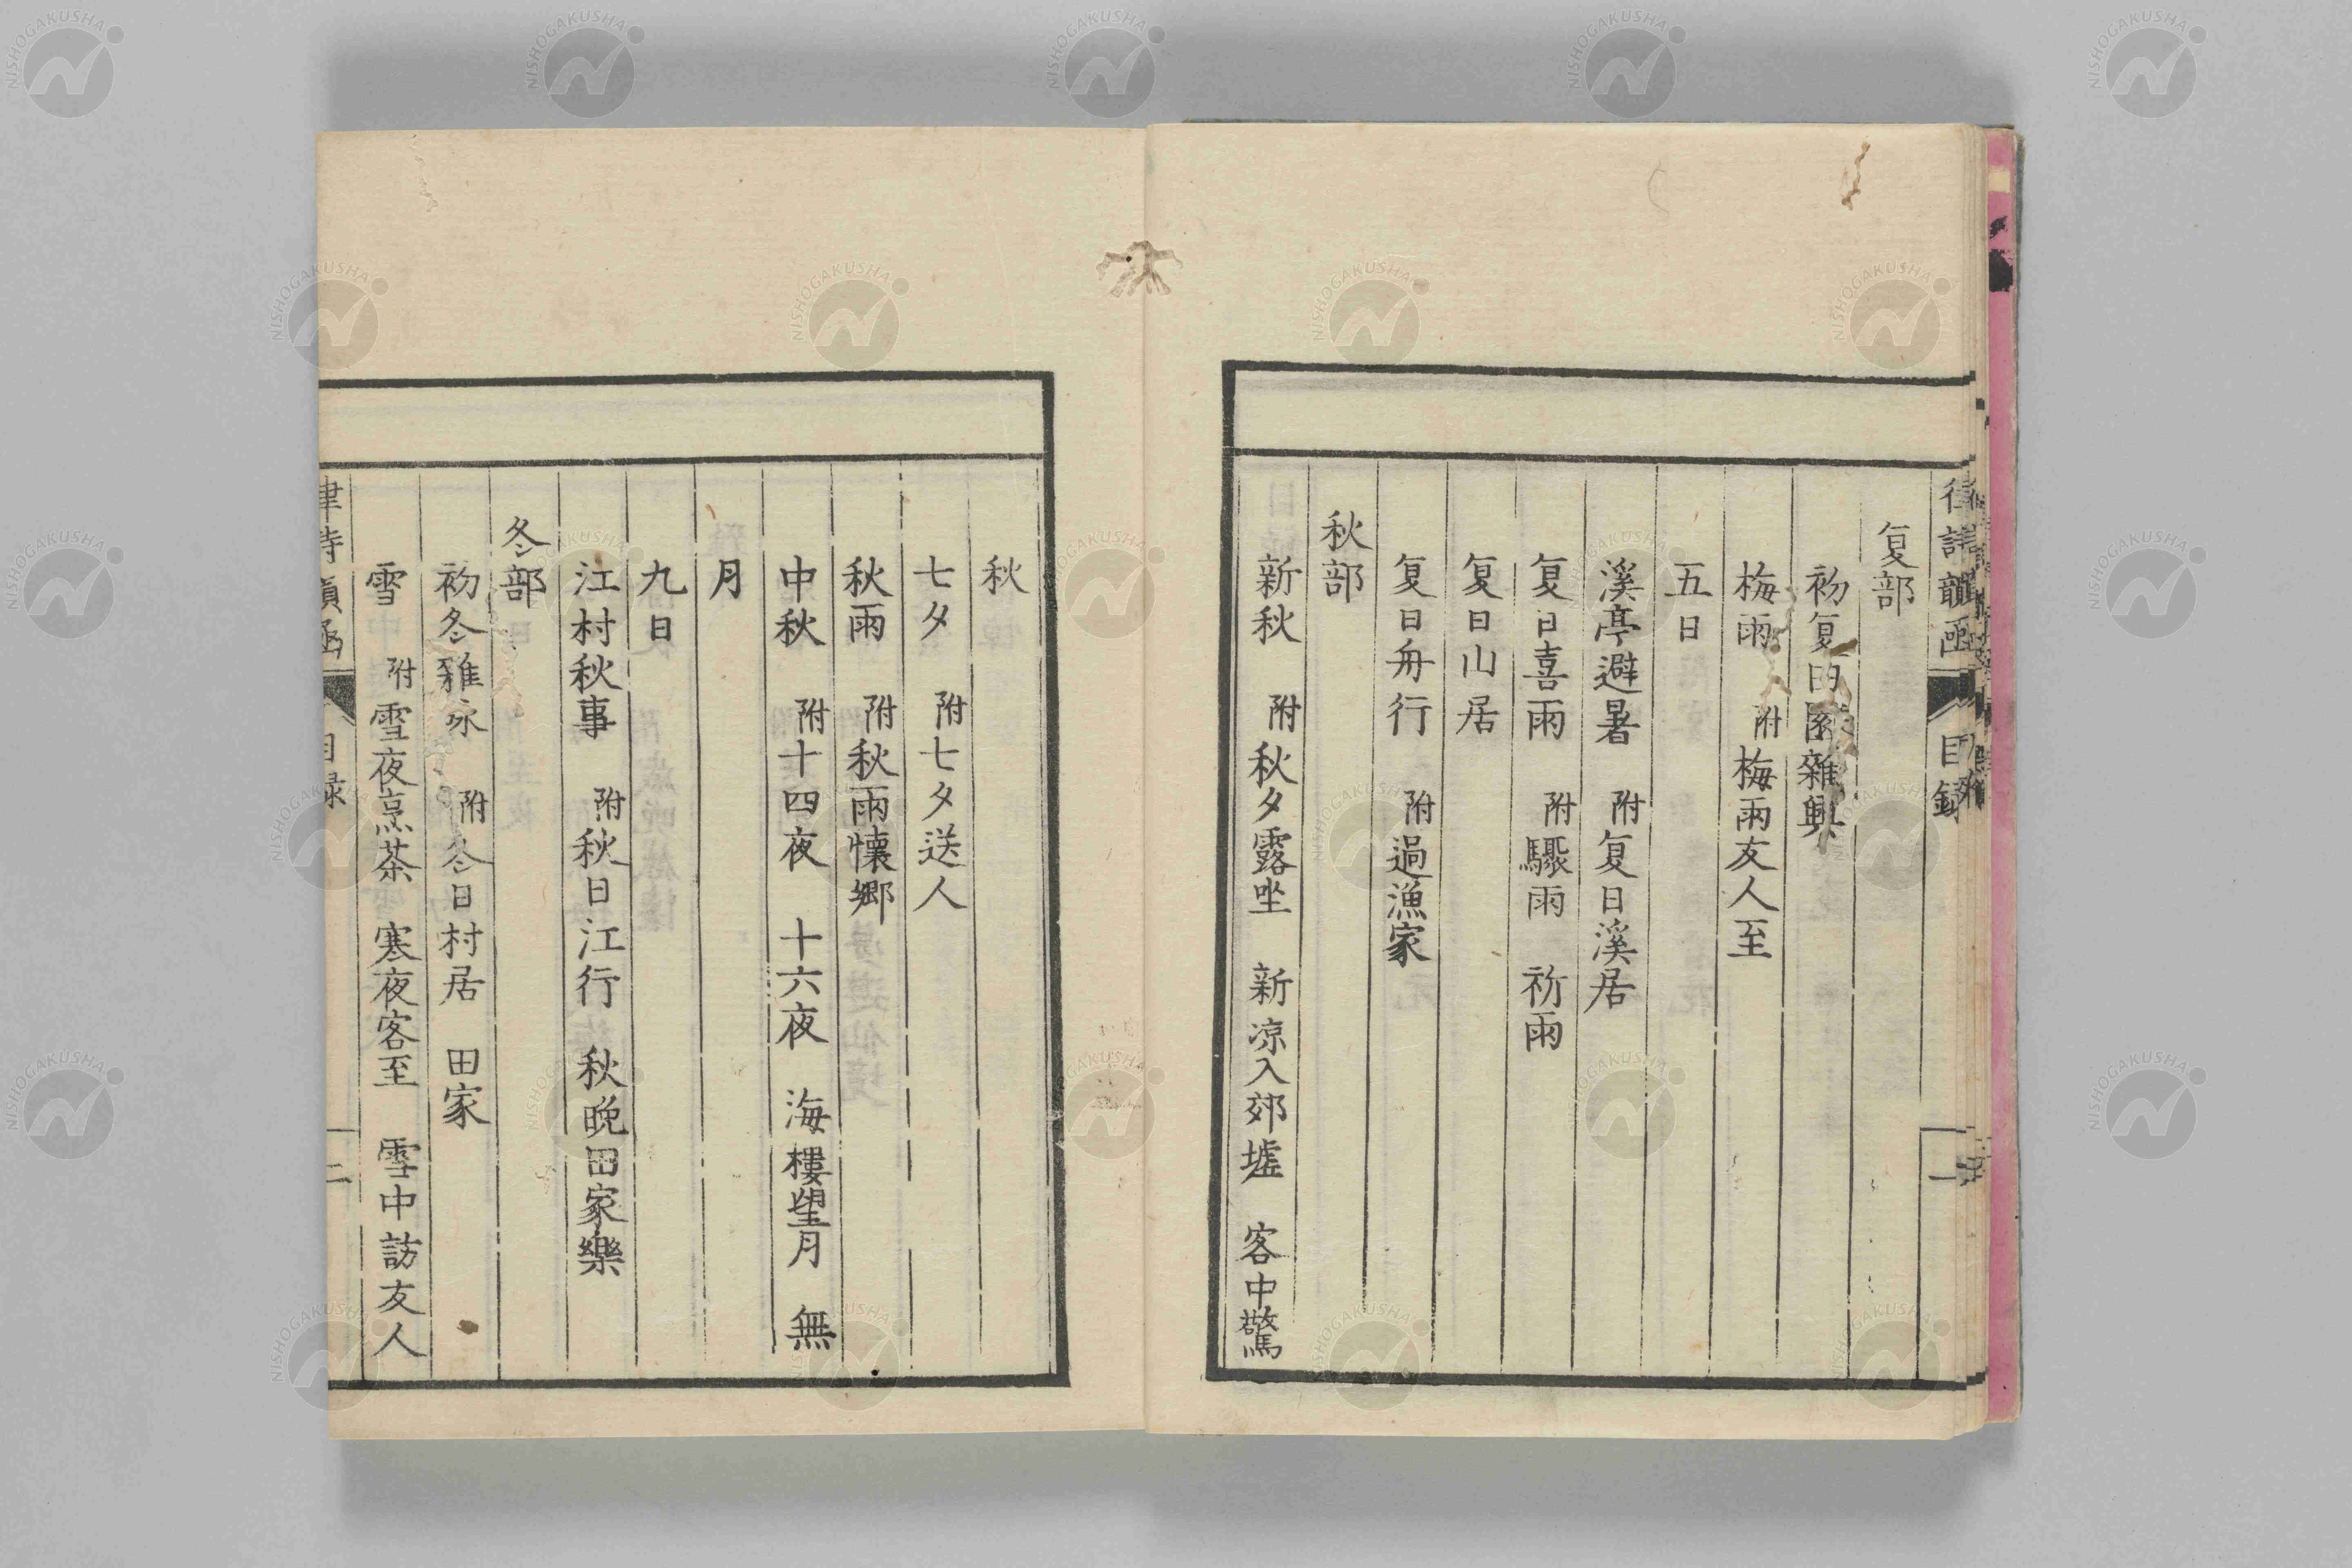 夏部
初夏田園雜興
梅雨 附梅雨友人至
五日
溪亭避暑 附夏日溪居
夏日喜雨 附驟雨 祈雨
夏日山居
夏日舟行 附過漁家
秋部
新秋 附秋夕露坐 新凉入郊墟 客中驚
秋
七夕 附七夕送人
秋雨 附秋雨懷鄉
中秋 附十四夜 十六夜 海樓望月 無
月
九日
江村秋事 附秋日江行 秋晚田家樂
冬部
初冬雜咏 附冬日村居 田家
雪 附雪夜烹茶 寒夜客至 雪中訪友人
目録 二